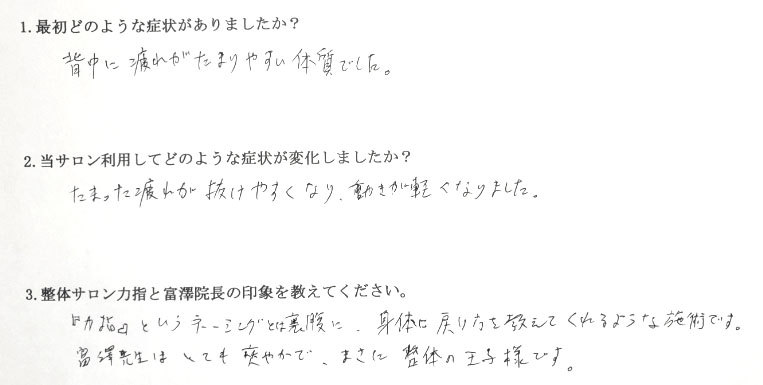 1.最初どのような症状がありましたか？
背中に疲れがたまりやすい体質でした。
2.当サロン利用してどのような症状が変化しましたか？
たまった疲れが抜けやすくなり、動きが軽くなりました。
3.整体サロン力指と富澤院長の印象を教えてください。
『力指』というネーミングとは裏腹に、身体に戻り方を教えてくれるような施術です。
富澤先生はとても爽やかで、まさに整体の王子様です。